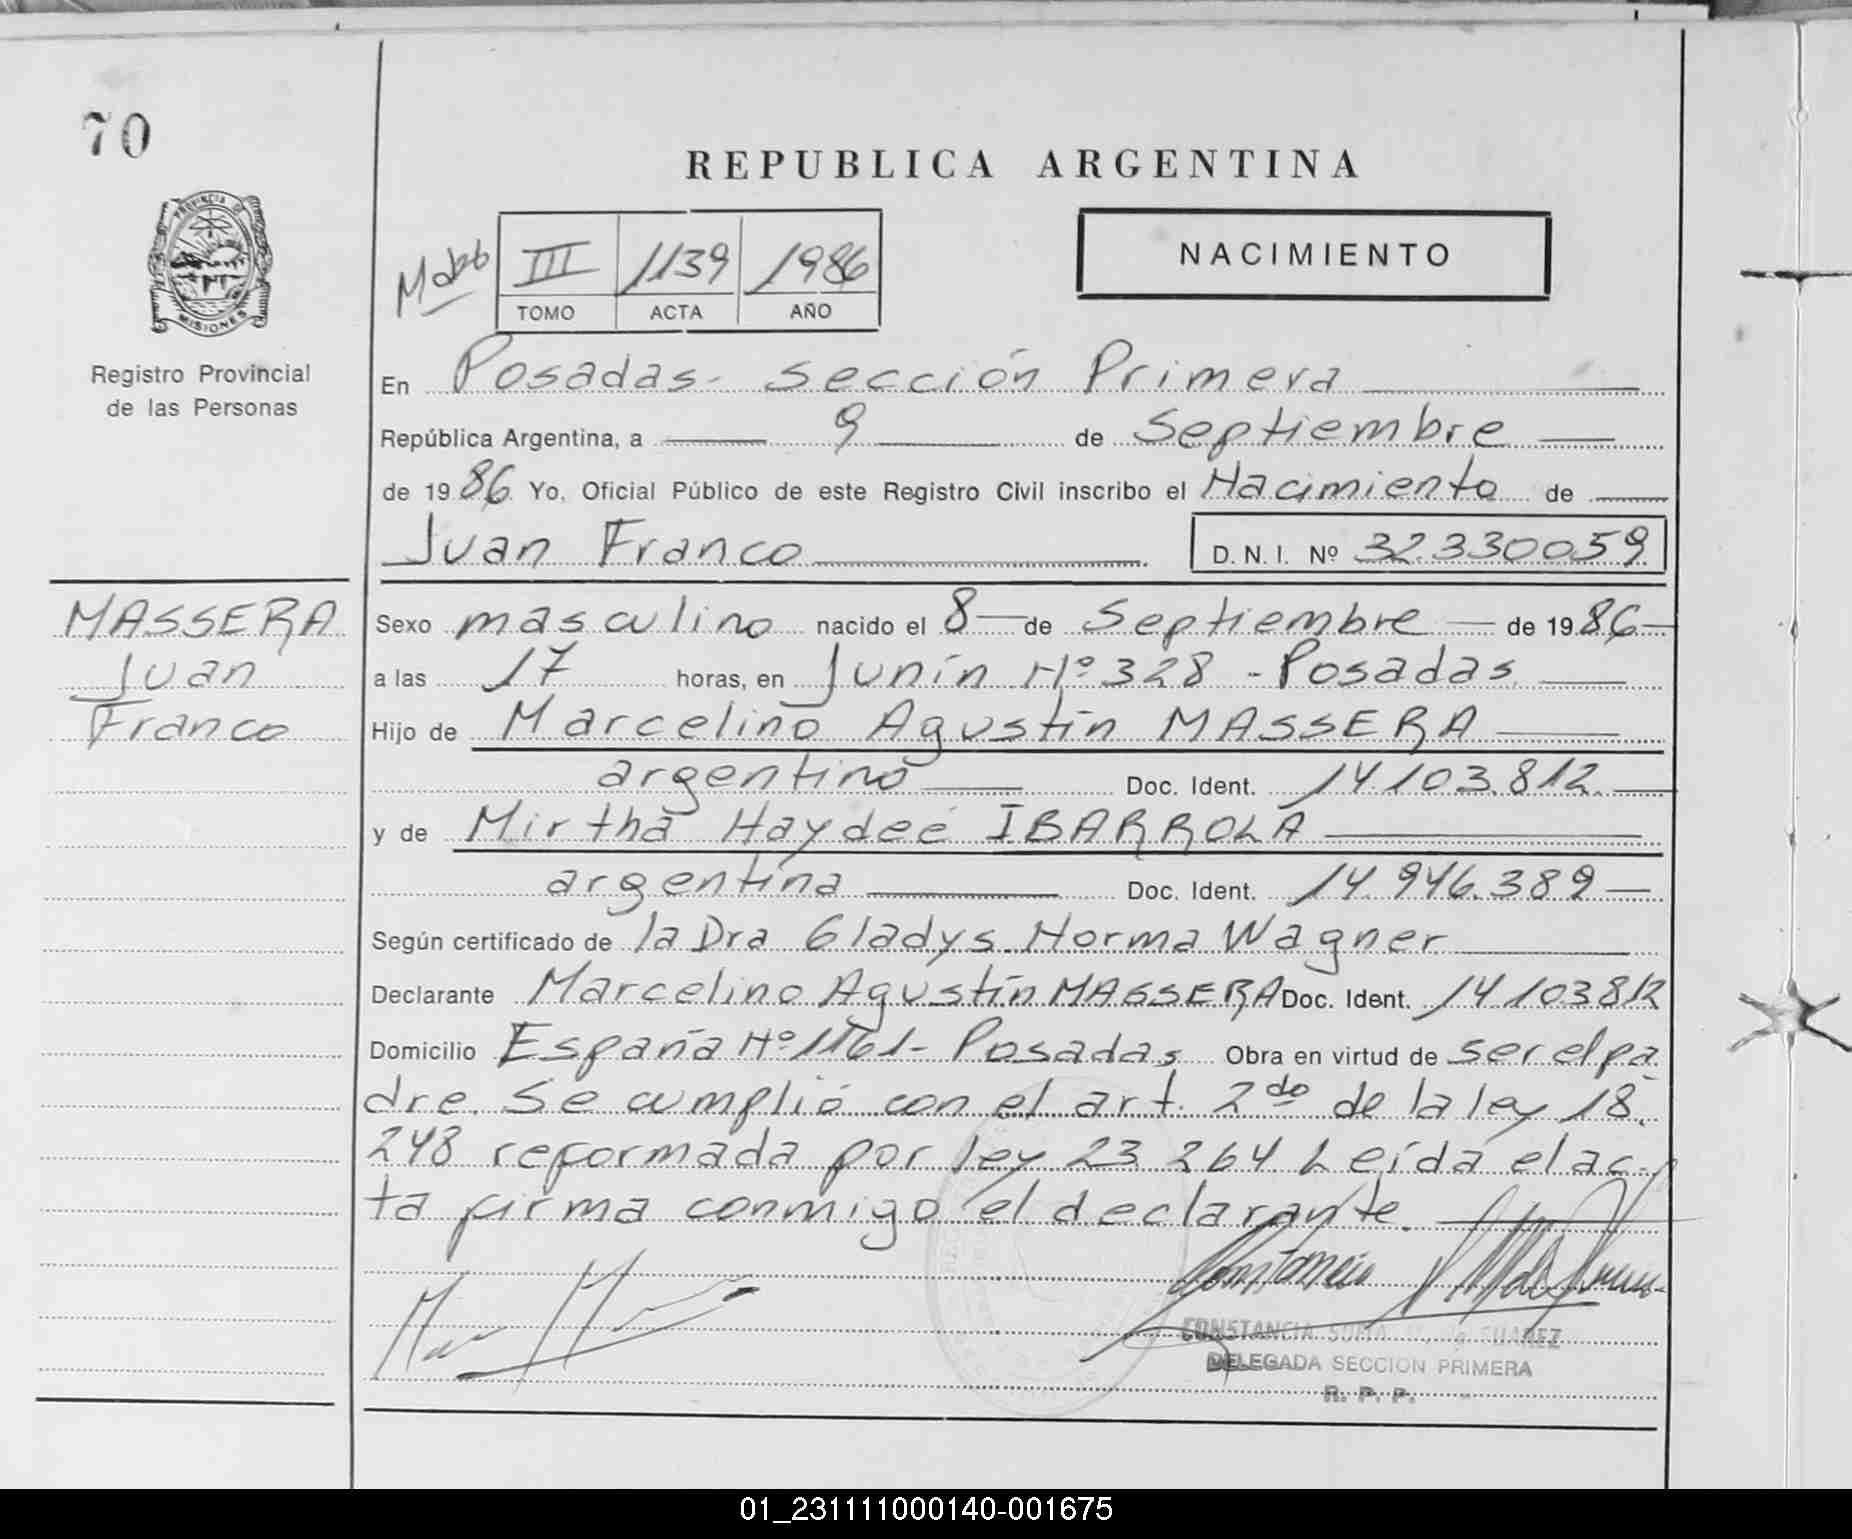 70
REPUBLICA ARGENTINA
PROVINCIA DE
MISIONES
Registro Provincial
de las Personas
III 1139 1986
TOMO ACTA AÑO
NACIMIENTO
En Posadas- sección Primera
República Argentina, a 9 de Septiembre
de 1986 Yo, Oficial Público de este Registro Civil inscribo el Nacimiento de
Juan Franco D.N.I. Nº 32.330059
MASSERA
Juan
Franco
Sexo masculino nacido el 8 de Septiembre de 1986
a las 17 horas, en Junín Nº 328 - Posadas
Hijo de Marcelino Agustín MASSERA
argentino Doc. Ident. 14.103.812.
y de Mirtha Haydeé IBARROLA
argentina Doc. Ident. 14.946.389
Según certificado de la Dra Gladys Norma Wagner
Declarante Marcelino Agustín MASSERA Doc. Ident. 14.103812
Domicilio España Nº 1161- Posadas Obra en virtud de ser el pa
dre. Se cumplió con el art. 2do de la ley 18.
248 reformada por ley 23.264 Leída el ac-
ta firma conmigo el declarante.
CONSTANCIA SUAREZ
DELEGADA SECCION PRIMERA
R. P. P.
01_231111000140-001675